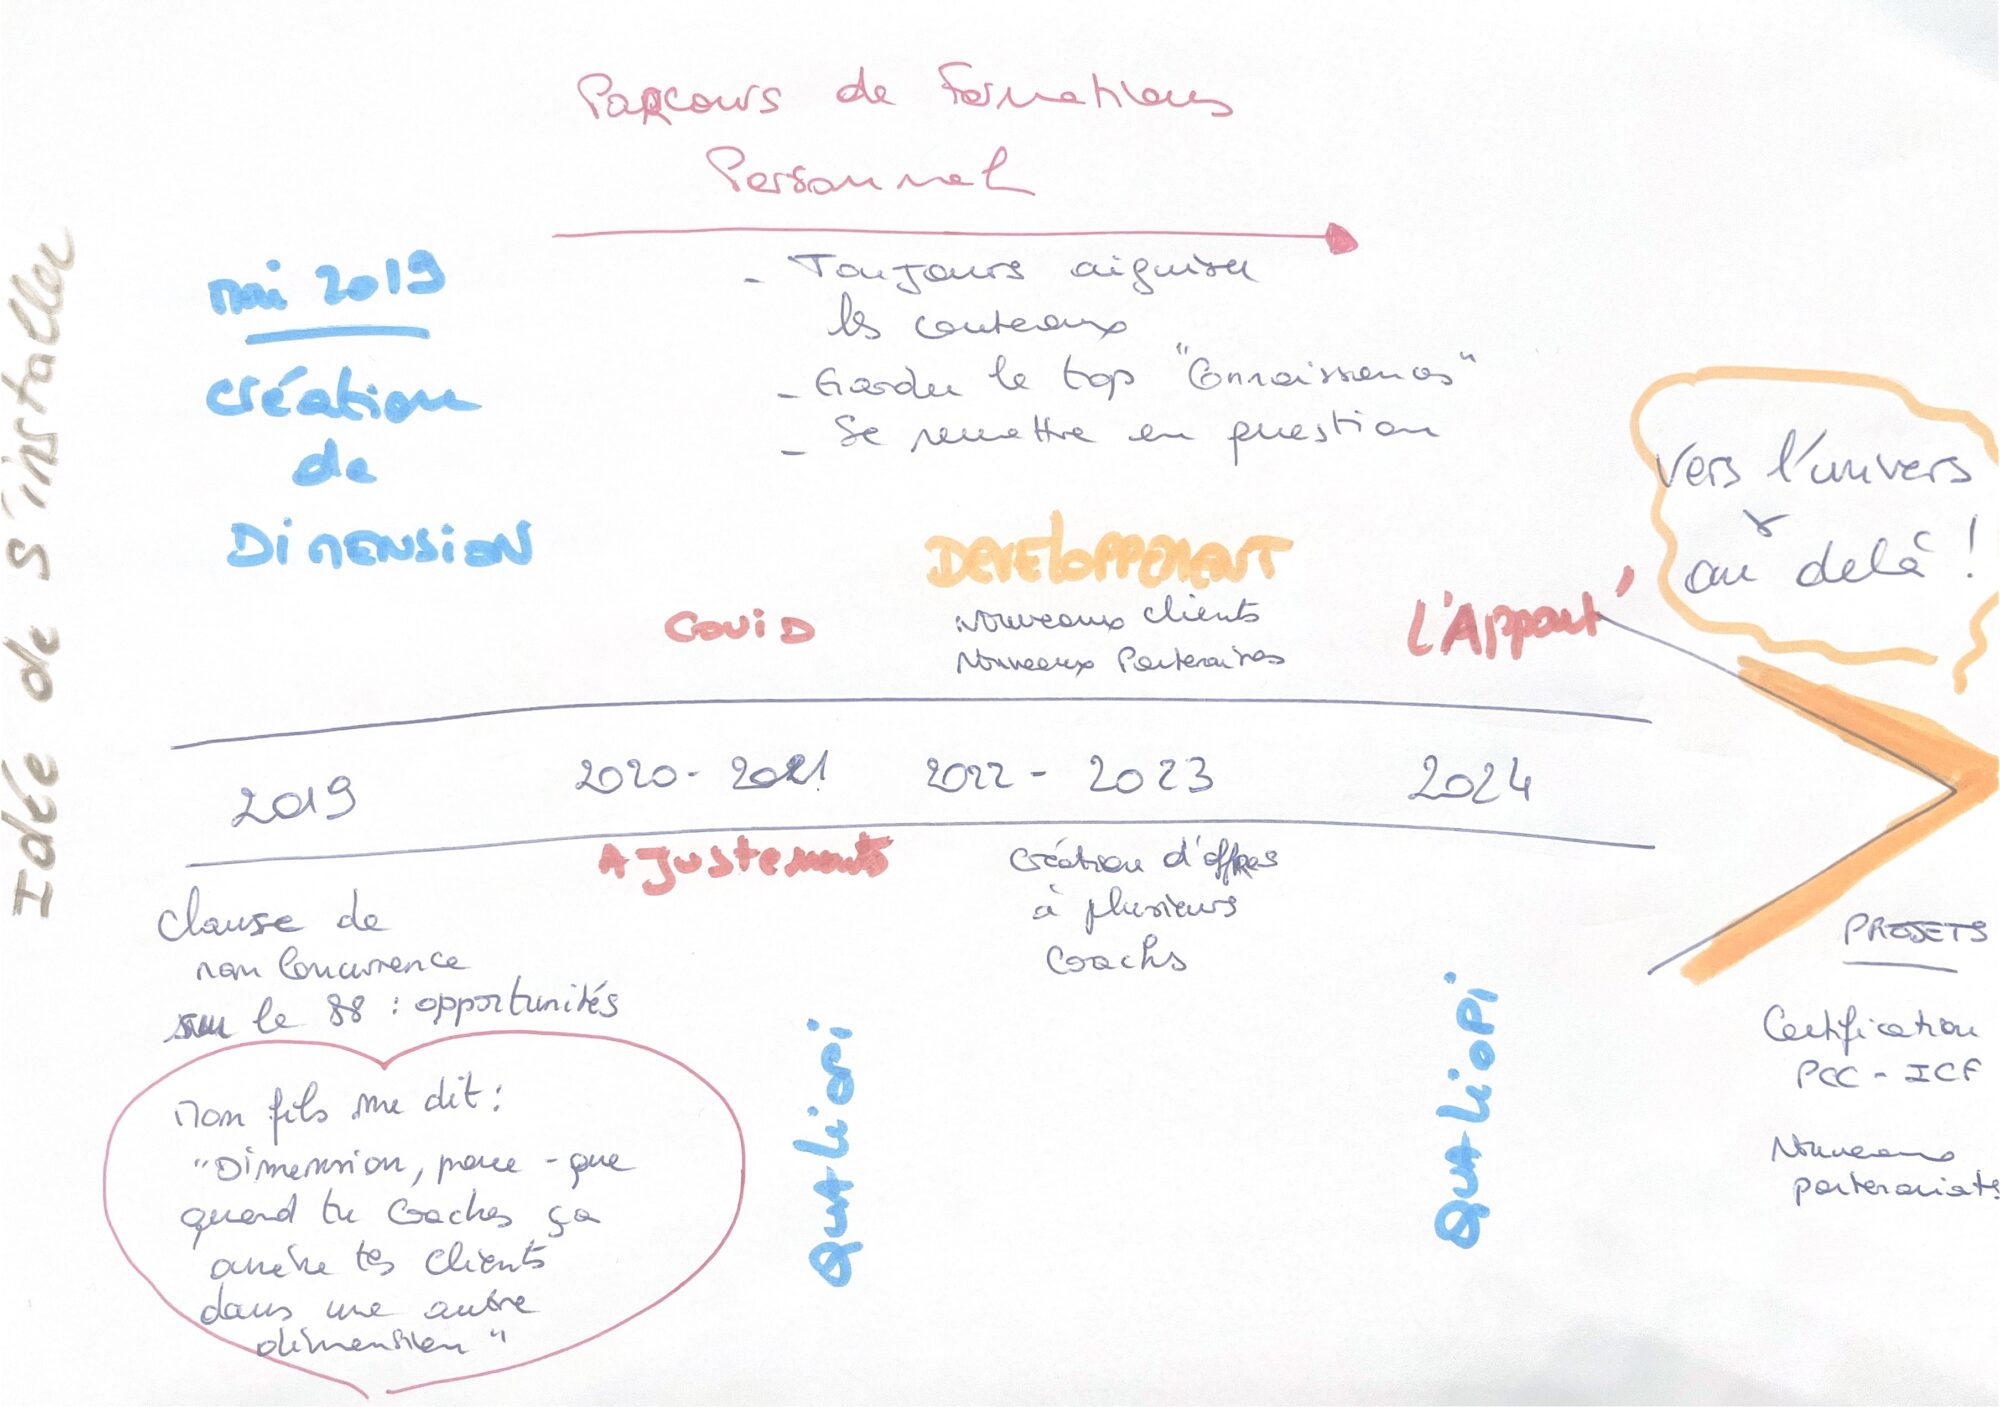 Idée de s'installer
Parcours de Formations
Personnel
- Toujours aiguiser
les couteaux
- Garder le top "Connaissances"
- Se remettre en question
mai 2019
Création
de
DIMENSION
COVID
DEVELOPPEMENT
Nouveaux clients
Nouveaux Partenaires
L'Appart'
Vers l'univers
&
au delà !
2019
2020 - 2021
2022 - 2023
2024
Ajustements
Création d'offres
à plusieurs
Coachs
Clause de
non concurrence
sur le 88 : opportunités
Mon fils me dit :
"Dimension, parce-que
quand tu coaches ça
amène tes clients
dans une autre
dimension"
QUALIOPI
QUALIOPI
PROJETS
Certification
PCC - ICF
Nouveaux
partenariats